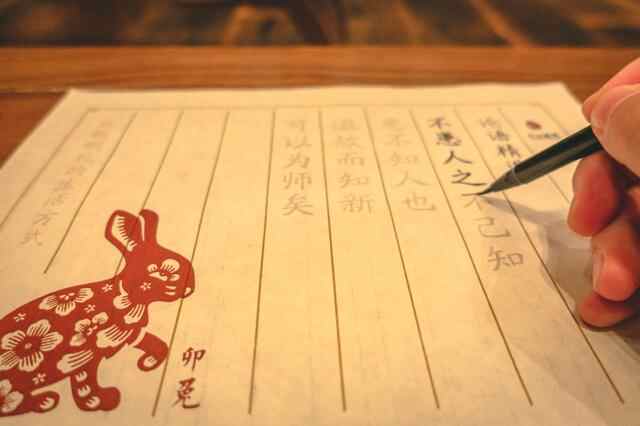 论语精
不患人之不己知
患不知人也
温故而知新
可以为师矣
的生活方式
卯兔